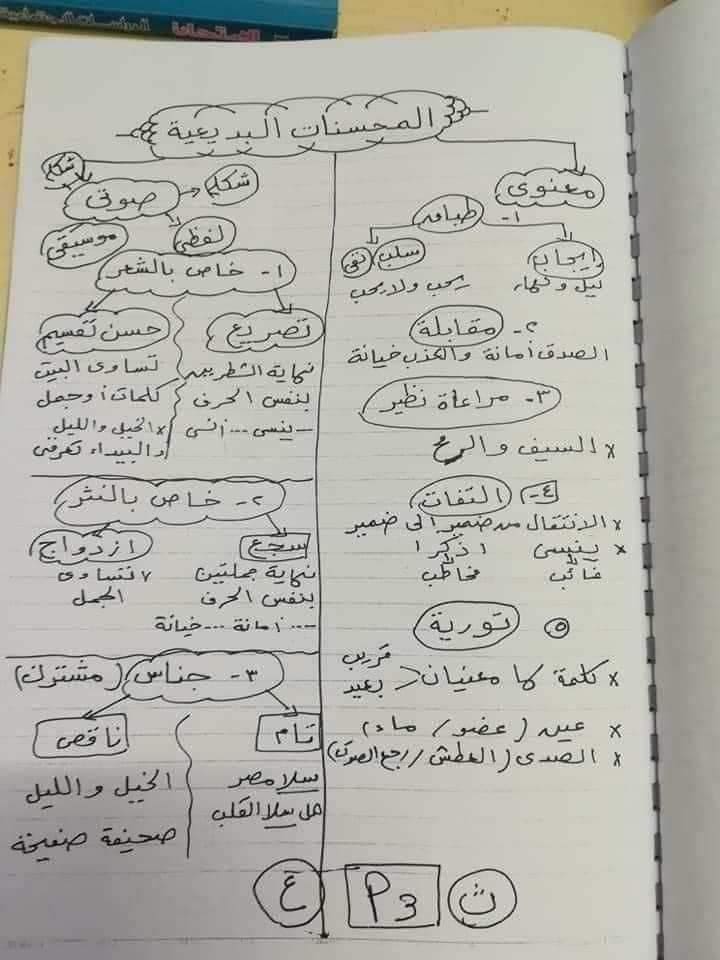 الدراسات الاجتماعية
الامتحان
المحسنات البديعية
معنوى
١- طباق
إيجاب
سلب نفى
ليل ونهار
يحب ولا يحب
٢- مقابلة
الصدق أمانة والكذب خيانة
٣- مراعاة نظير
× السيف والرمح
٤- التفات
× الانتقال من ضمير إلى ضمير
× ينسى اذكرا
غائب مخاطب
٥ تورية
× كلمة لها معنيان < قريب
بعيد
× عين (عضو / ماء)
× الصدى (العطش / رجع الصوت)
شكلى
صوتى
شكلى
لفظى
موسيقى
١- خاص بالشعر
تصريع
نهاية الشطرين
بنفس الحرف
– ينسى ... أنسى
حسن تقسيم
تساوى البيت
كلمات أو جمل
× الخيل والليل
والبيداء تعرفنى
٢- خاص بالنثر
سجع
نهاية جملتين
بنفس الحرف
... أمانة ... خيانة
ازدواج
تساوى
الجمل
٣- جناس (مشترك)
تام
سلا مصر
هل سلا القلب
ناقص
الخيل والليل
صحيفة صفيحة
ث
P3
ع